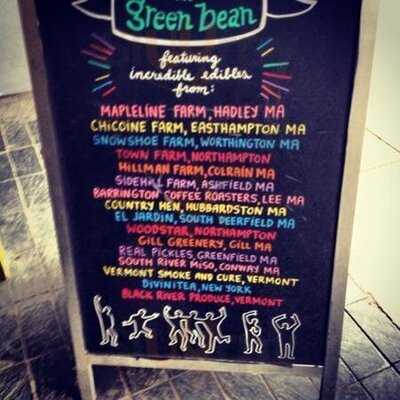 green bean
featuring
incredible edibles
from:
MAPLELINE FARM, HADLEY MA
CHICOINE FARM, EASTHAMPTON MA
SNOWSHOE FARM, WORTHINGTON MA
TOWN FARM, NORTHAMPTON
HILLMAN FARM, COLRAIN MA
SIDEHILL FARM, ASHFIELD MA
BARRINGTON COFFEE ROASTERS, LEE MA
COUNTRY HEN, HUBBARDSTON MA
EL JARDIN, SOUTH DEERFIELD MA
WOODSTAR, NORTHAMPTON
GILL GREENERY, GILL MA
REAL PICKLES, GREENFIELD MA
SOUTH RIVER MISO, CONWAY MA
VERMONT SMOKE AND CURE, VERMONT
DIVINITEA, NEW YORK
BLACK RIVER PRODUCE, VERMONT